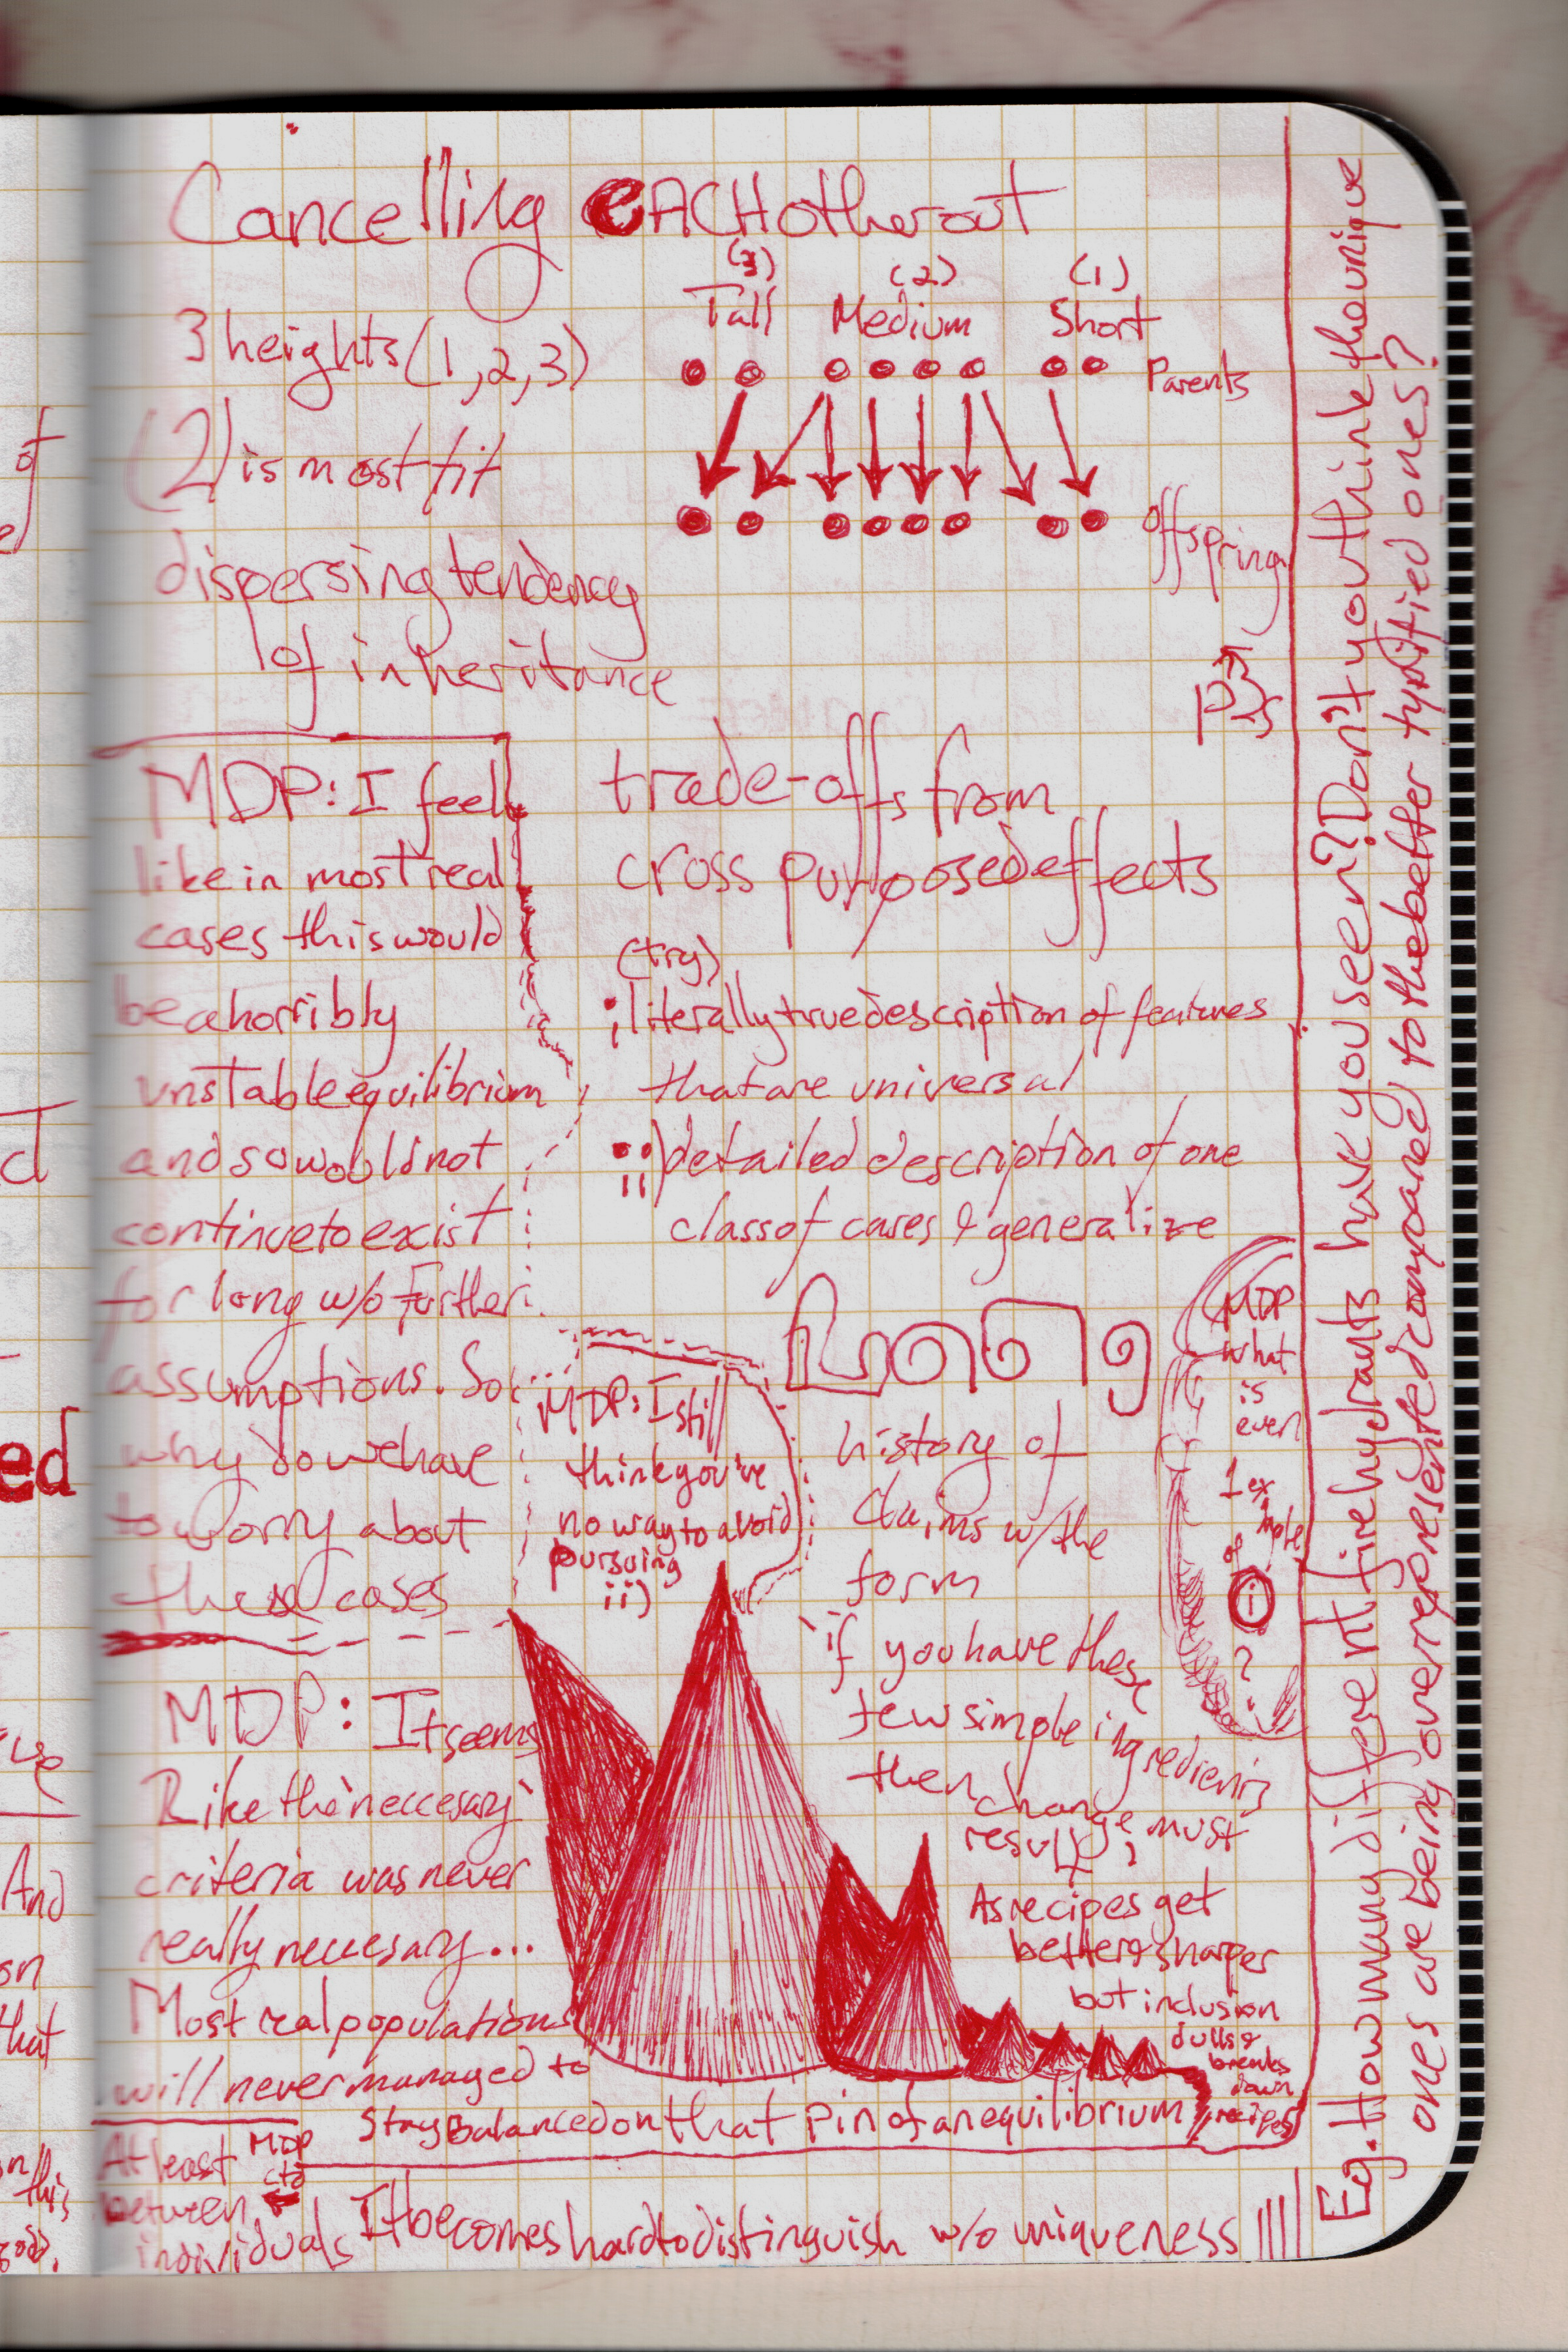 Cancelling eACH other out
3 heights (1,2,3)
(2) is most fit
dispersing tendency
of inheritance
(3) (2) (1)
Tall Medium Short
Parents
offspring
trade-offs from
cross purposed effects
(try)
i literally true description of features
that are universal
ii) detailed description of one
class of cases & generalize
MDP: I feel
like in most real
cases this would
be a horribly
unstable equilibrium
and so would not
continue to exist
for long w/o Further
assumptions. So
why do we have
to worry about
these cases
MDP: I still
think you've
no way to avoid
pursuing
ii)
history of
claims w/ the
form
if you have these
few simple ingredients
then change must
result;
As recipes get
better & sharper
but inclusion
dulls &
breaks
down
recipes
MDP
what
is
even
1 ex
ample
of
i
?
MDP: It seems
like the 'neccesary'
criteria was never
really neccesary...
Most real populations
will never managed to
stay balanced on that pin of an equilibrium
At least
between
individuals
MDP
ctd
It becomes hard to distinguish w/o uniqueness
Eg. How many different fire hydrants have you seen? Don't you think the unique
ones are being overrepresented compared to the better typified ones?
of
ed
And
on
that